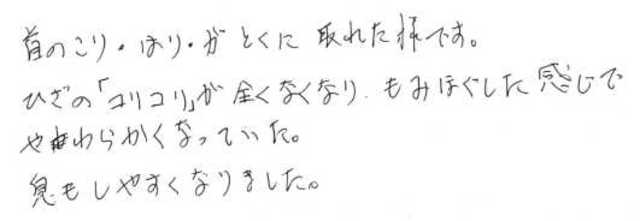 首のこり・はり・が とくに 取れた様です。
ひざの「コリコリ」が 全くなくなり、もみほぐした 感じで
やわらかくなっていた。
息もしやすくなりました。